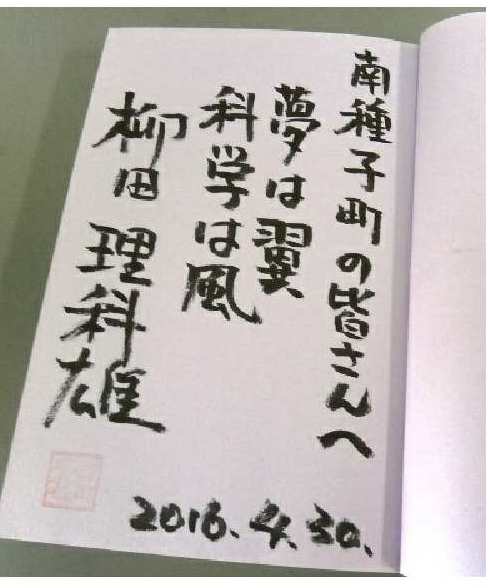 南種子町の皆さんへ
夢は翼
科学は風
柳田理科雄
2016.4.30.